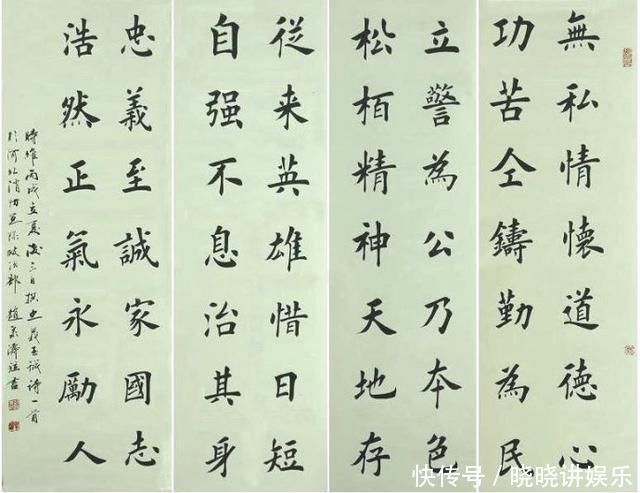 無私情懷道德心
功苦仝鑄勤為民
立警為公乃本色
松柏精神天地存
從来英雄惜日短
自强不息治其身
忠義至誠家國志
浩然正氣永勵人
時維丙戌立夏後三日撰忠義至誠诗一首
於河北消防政治部 趙濟並書
快传号 / 晓晓讲娱乐